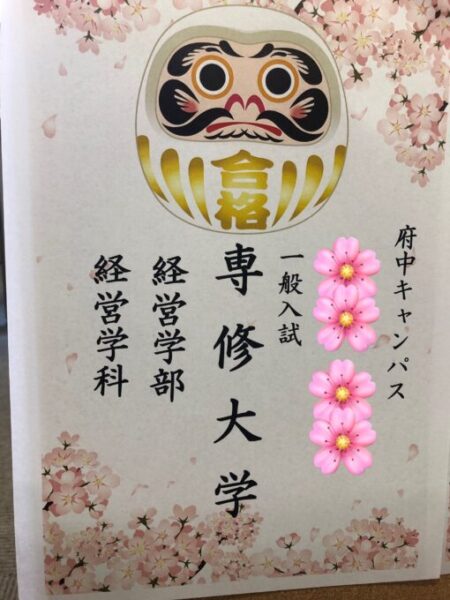 合格
府中キャンパス
一般入試
専修大学
経営学部
経営学科